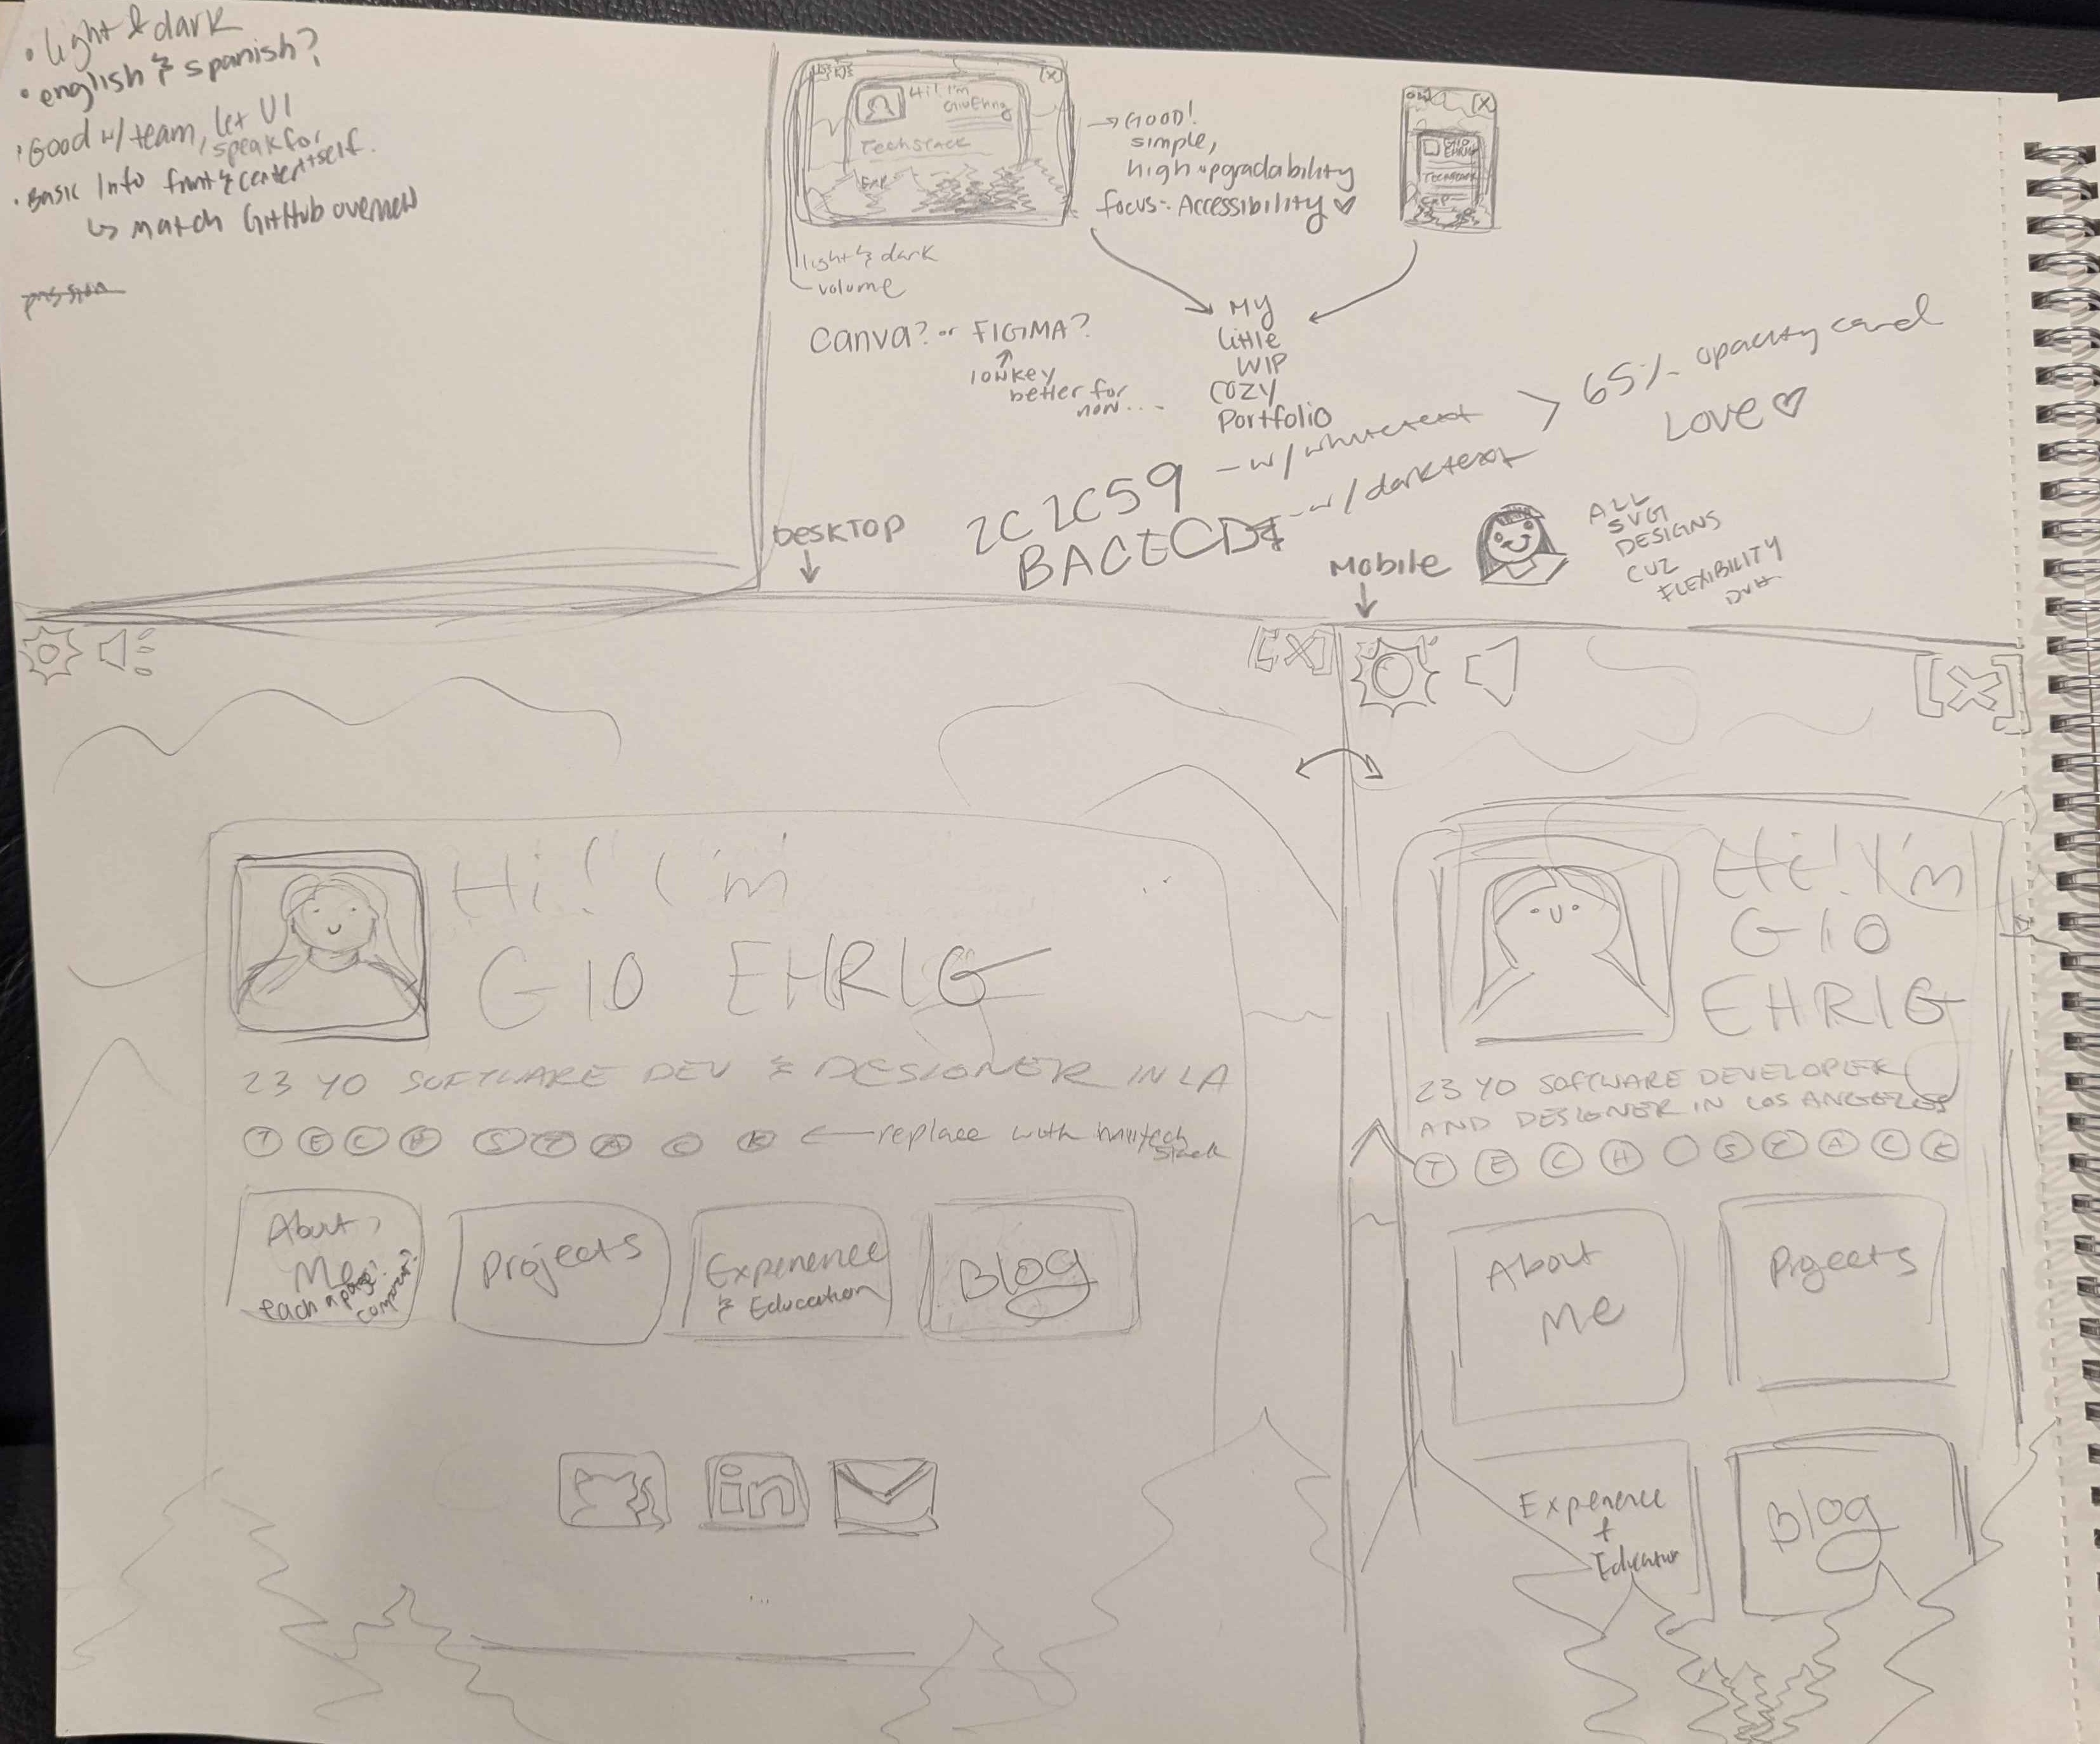 • light & dark
• english & spanish?
• Good w/ team, let UI
speak for
itself.
• Basic Info front & center
↳ match GitHub overview
[X]
Hi! I'm
Gio Ehrig
Techstack
→ GOOD!
simple,
high upgradability
focus: Accessibility ♡
light & dark
volume
[X]
GIO
EHRIG
TECHSTACK
Canva? or FIGMA?
↑
lowkey
better for
now...
My
little
WIP
cozy
Portfolio
2C2C59 - w/ white text
- w/ dark text
> 65% opacity card
LOVE ♡
DESKTOP
↓
MOBILE
↓
ALL
SVG
DESIGNS
CUZ
FLEXIBILITY
DUH
[X]
Hi! I'm
GIO EHRIG
23 YO SOFTWARE DEV & DESIGNER IN LA
T E C H S T A C K ← replace with my tech
stack
About
Me
each a page?
component?
Projects
Experience
& Education
Blog
in
...
[X]
Hi! I'm
GIO
EHRIG
23 YO SOFTWARE DEVELOPER
AND DESIGNER IN LOS ANGELES
T E C H S T A C K
About
Me
Projects
Experience
+
Education
Blog